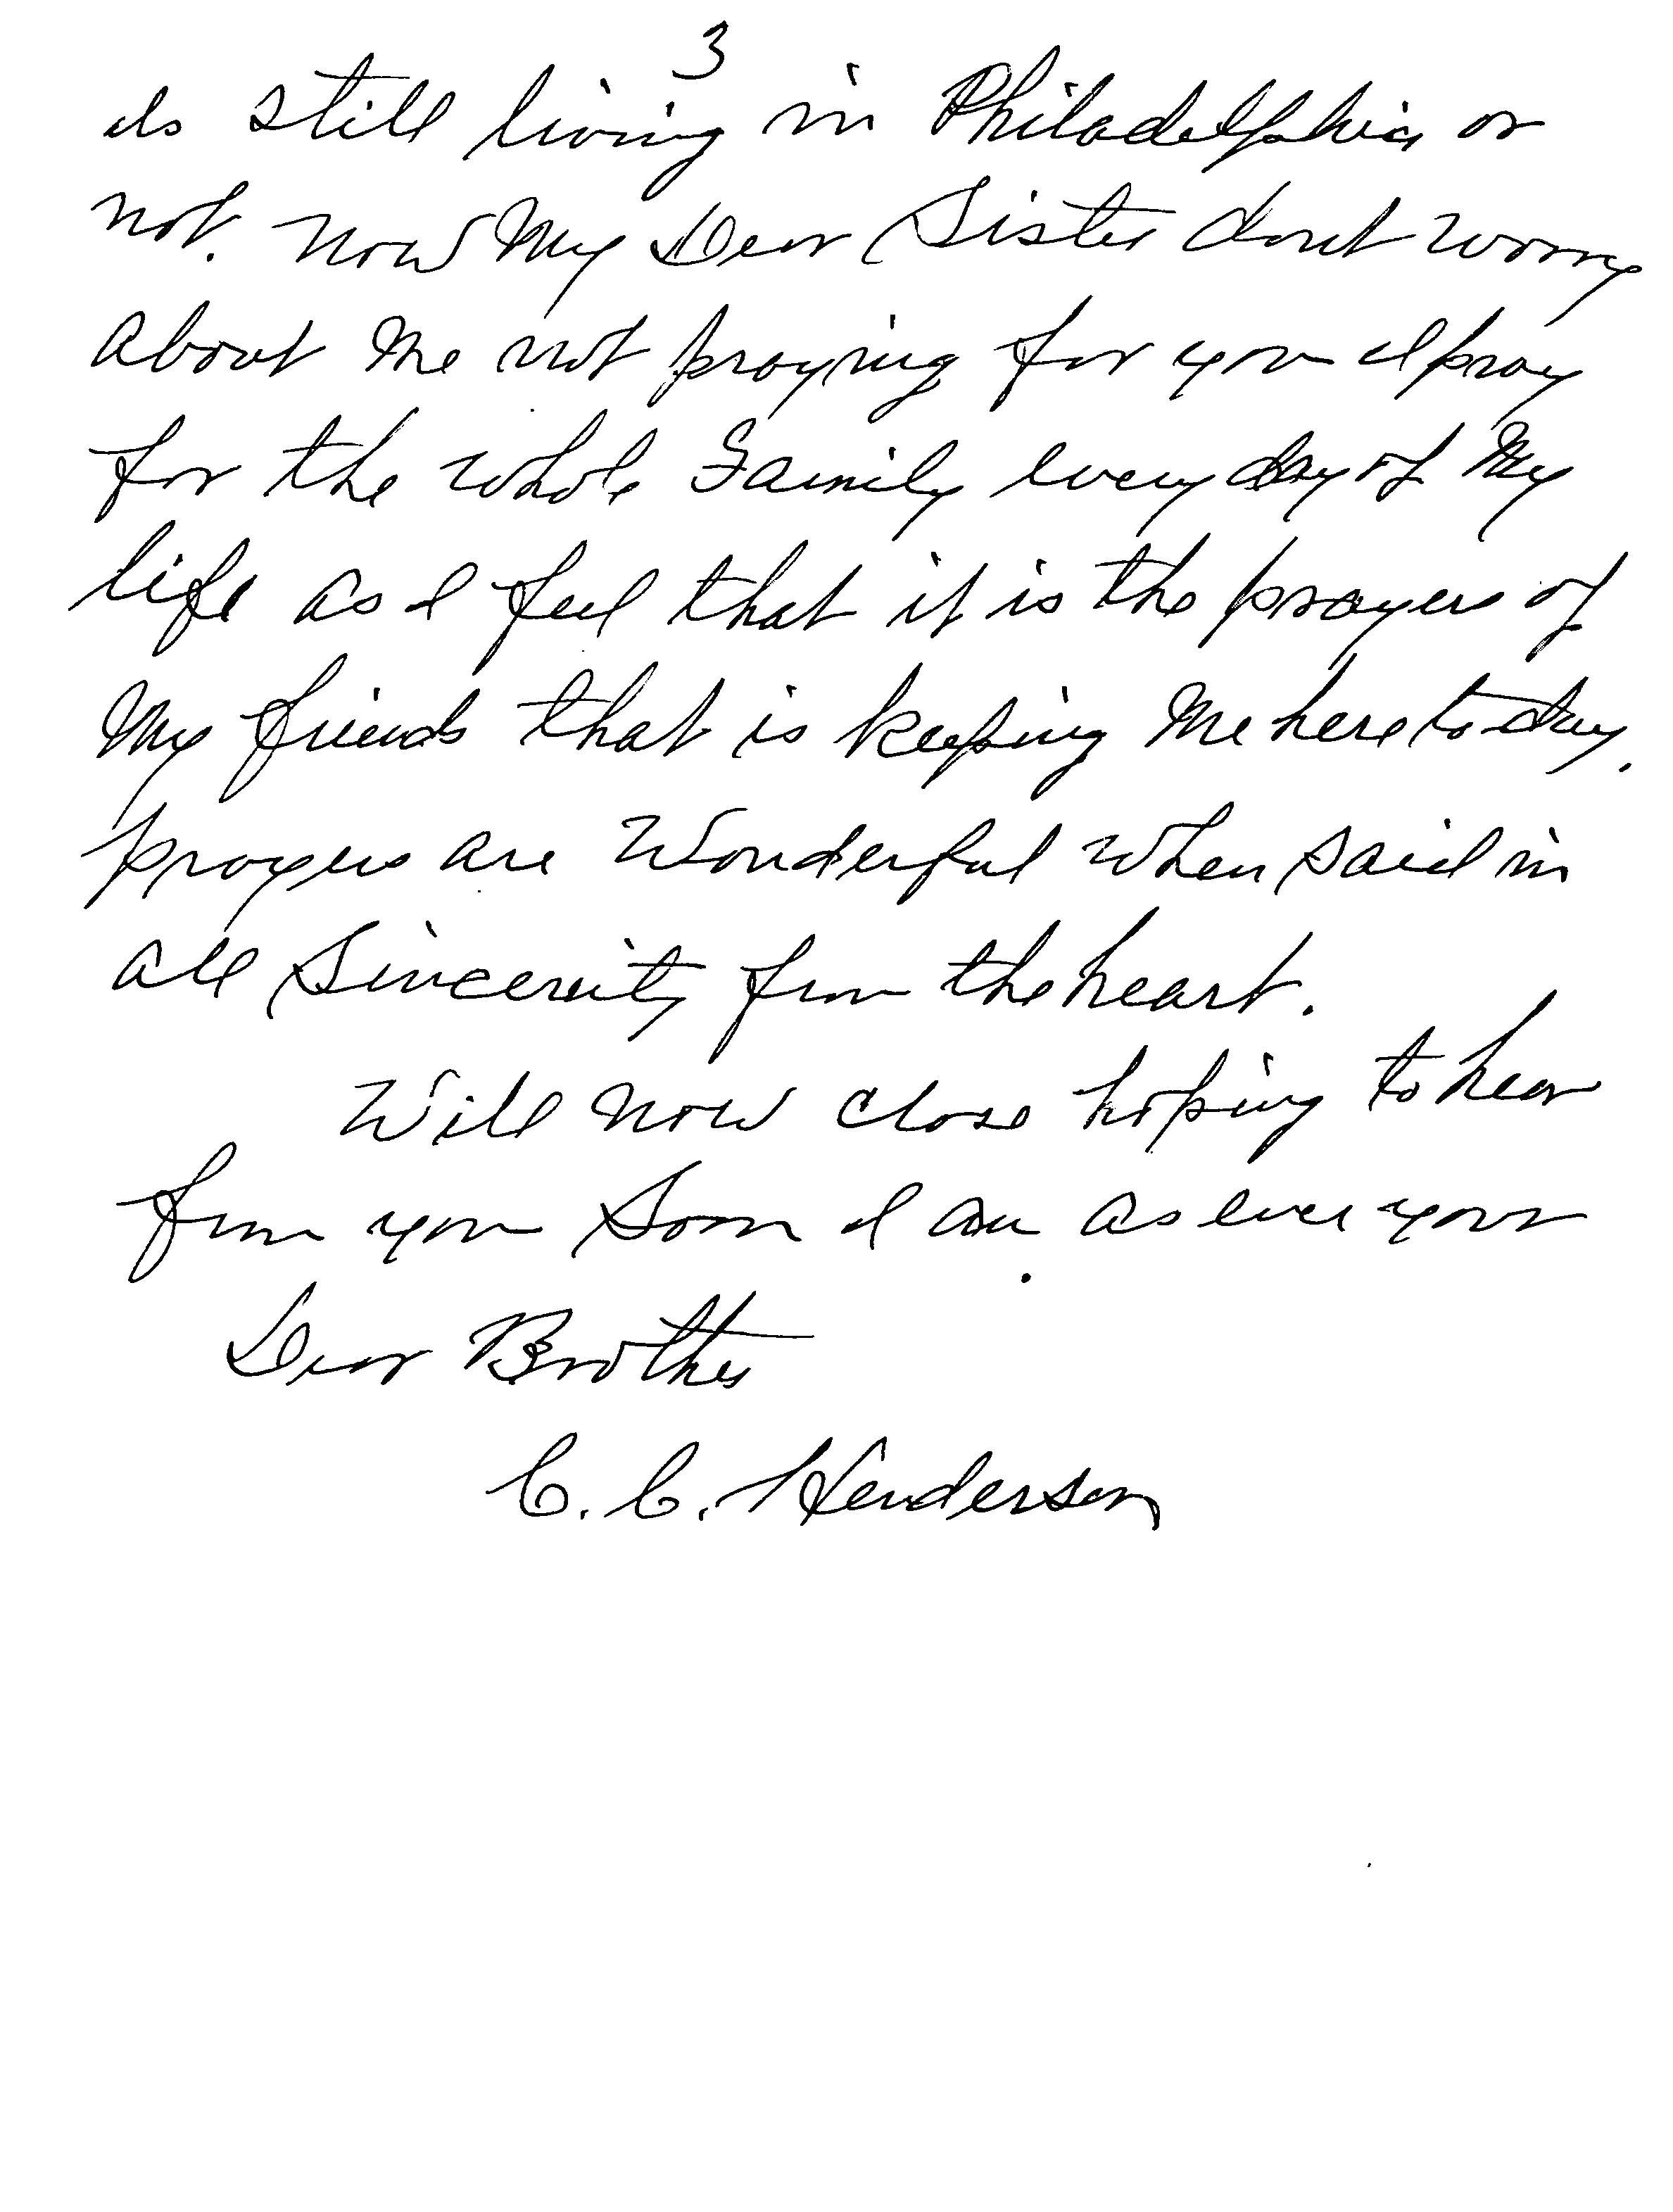 3
is still living in Philadelphia or
not. Now My Dear Sister dont worry
about Me not praying for you I pray
for the whole Family every day of My
life as I feel that it is the prayers of
My friends that is keeping Me here to day.
prayers are Wonderful when said in
all Sincerity from the heart.
Will Now close hoping to hear
from you Soon I am as ever your
Dear Brother
C. C. Henderson